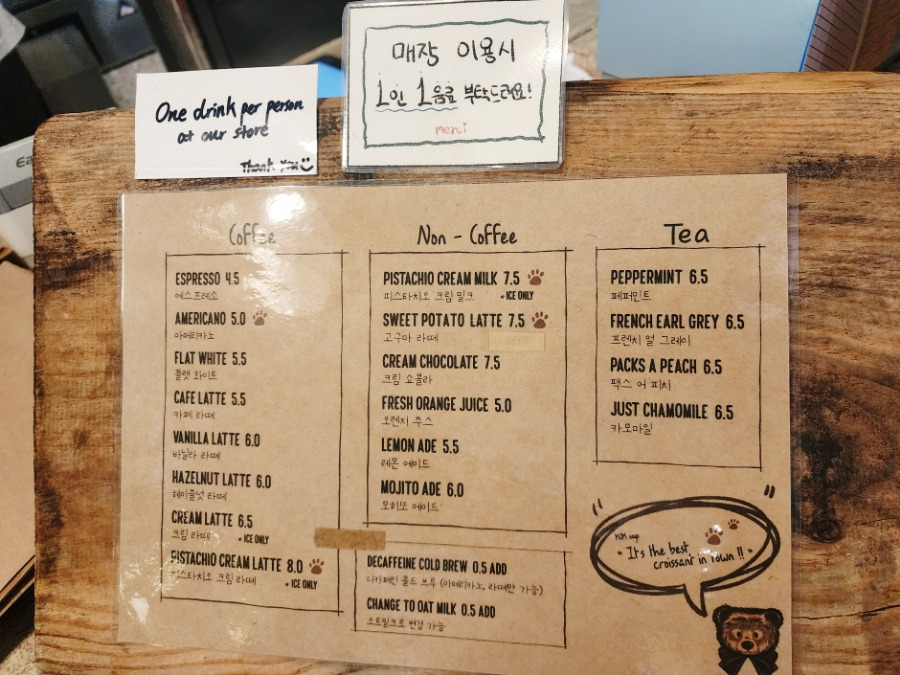 One drink per person
at our store
Thank you
매장 이용시
1인 1음료 부탁드려요!
merci
Coffee
ESPRESSO 4.5
에스프레소
AMERICANO 5.0
아메리카노
FLAT WHITE 5.5
플랫 화이트
CAFE LATTE 5.5
카페 라떼
VANILLA LATTE 6.0
바닐라 라떼
HAZELNUT LATTE 6.0
헤이즐넛 라떼
CREAM LATTE 6.5
크림 라떼 • ICE ONLY
PISTACHIO CREAM LATTE 8.0
피스타치오 크림 라떼 • ICE ONLY
Non - Coffee
PISTACHIO CREAM MILK 7.5
피스타치오 크림 밀크 • ICE ONLY
SWEET POTATO LATTE 7.5
고구마 라떼
CREAM CHOCOLATE 7.5
크림 쇼콜라
FRESH ORANGE JUICE 5.0
오렌지 주스
LEMON ADE 5.5
레몬 에이드
MOJITO ADE 6.0
모히또 에이드
DECAFFEINE COLD BREW 0.5 ADD
디카페인 콜드 브루 (아메리카노, 라떼만 가능)
CHANGE TO OAT MILK 0.5 ADD
오트밀크로 변경 가능
Tea
PEPPERMINT 6.5
페퍼민트
FRENCH EARL GREY 6.5
프렌치 얼 그레이
PACKS A PEACH 6.5
팩스 어 피치
JUST CHAMOMILE 6.5
카모마일
" "
• It's the best
croissant in town !! •